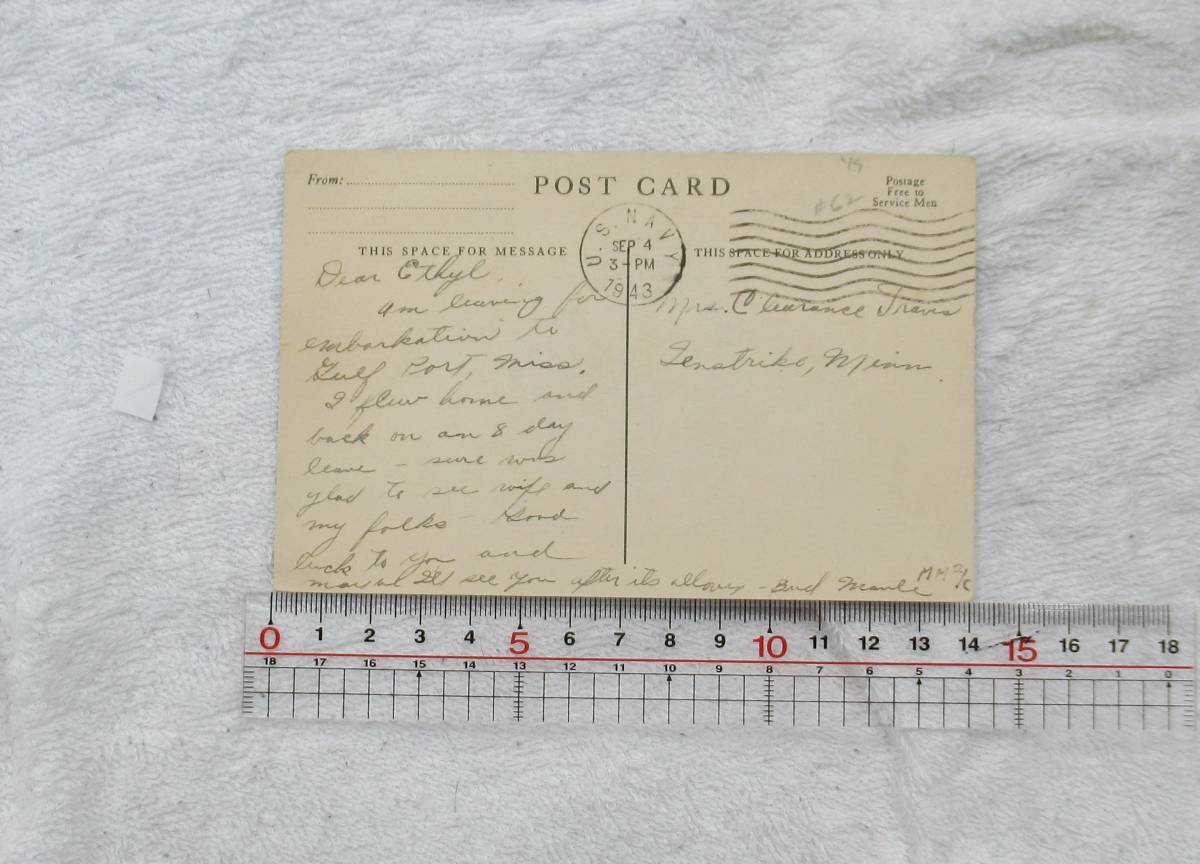 From:
POST CARD
Postage
Free to
Service Men
45
#62
THIS SPACE FOR MESSAGE
U.S. NAVY
SEP 4
3-PM
1943
THIS SPACE FOR ADDRESS ONLY
Dear Ethyl,
am leaving for
embarkation to
Gulf Port, Miss.
I flew home and
back on an 8 day
leave - sure was
glad to see wife and
my folks - Good
luck to you and
see you after its all over - Bud MM 2/c
Mrs. Clearance Travis
Tenstrike, Minn.
0 1 2 3 4 5 6 7 8 9 10 11 12 13 14 15 16 17 18
18 17 16 15 14 13 12 11 10 9 8 7 6 5 4 3 2 1 0